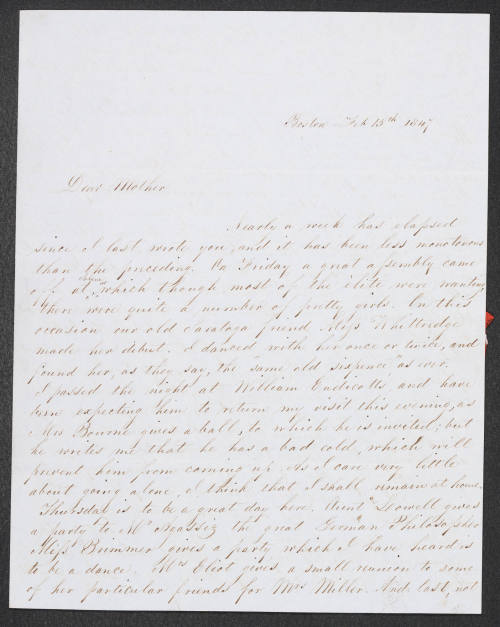 Boston Feb 15th 1847
Dear Mother
Nearly a week has elapsed
since I last wrote you, and it has been less monotonous
than the preceding. On Friday a great assembly came
off at which though most of the elite were wanting
there were quite a number of pretty girls. On this
occasion our old Saratoga friend Miss Whitredge
made her debut. I danced with her once or twice, and
found her, as they say, the "same old sixpence" as ever.
I passed the night at William Endicotts and have
been expecting him to return my visit this evening, as
Mrs Bourne gives a ball, to which he is invited; but
he writes me that he has a bad cold, which will
prevent him from coming up. As I care very little
about going alone, I think that I shall remain at home.
Thursday is to be a great day here. Aunt Lowell gives
a party to Mr Agassiz the great German Philosopher
Miss Brimmer gives a party which I have heard is
to be a dance. Mrs Eliot gives a small reunion to some
of her particular friends for Mrs Miller. And last, not